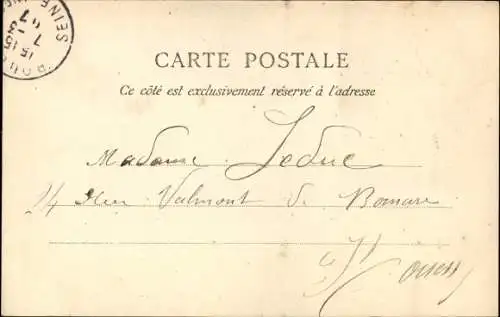 SEINE
15 15
7 - 3
07
ROUEN
CARTE POSTALE
Ce côté est exclusivement réservé à l'adresse
Madame Leduc
14 Rue Valmont de Bomare